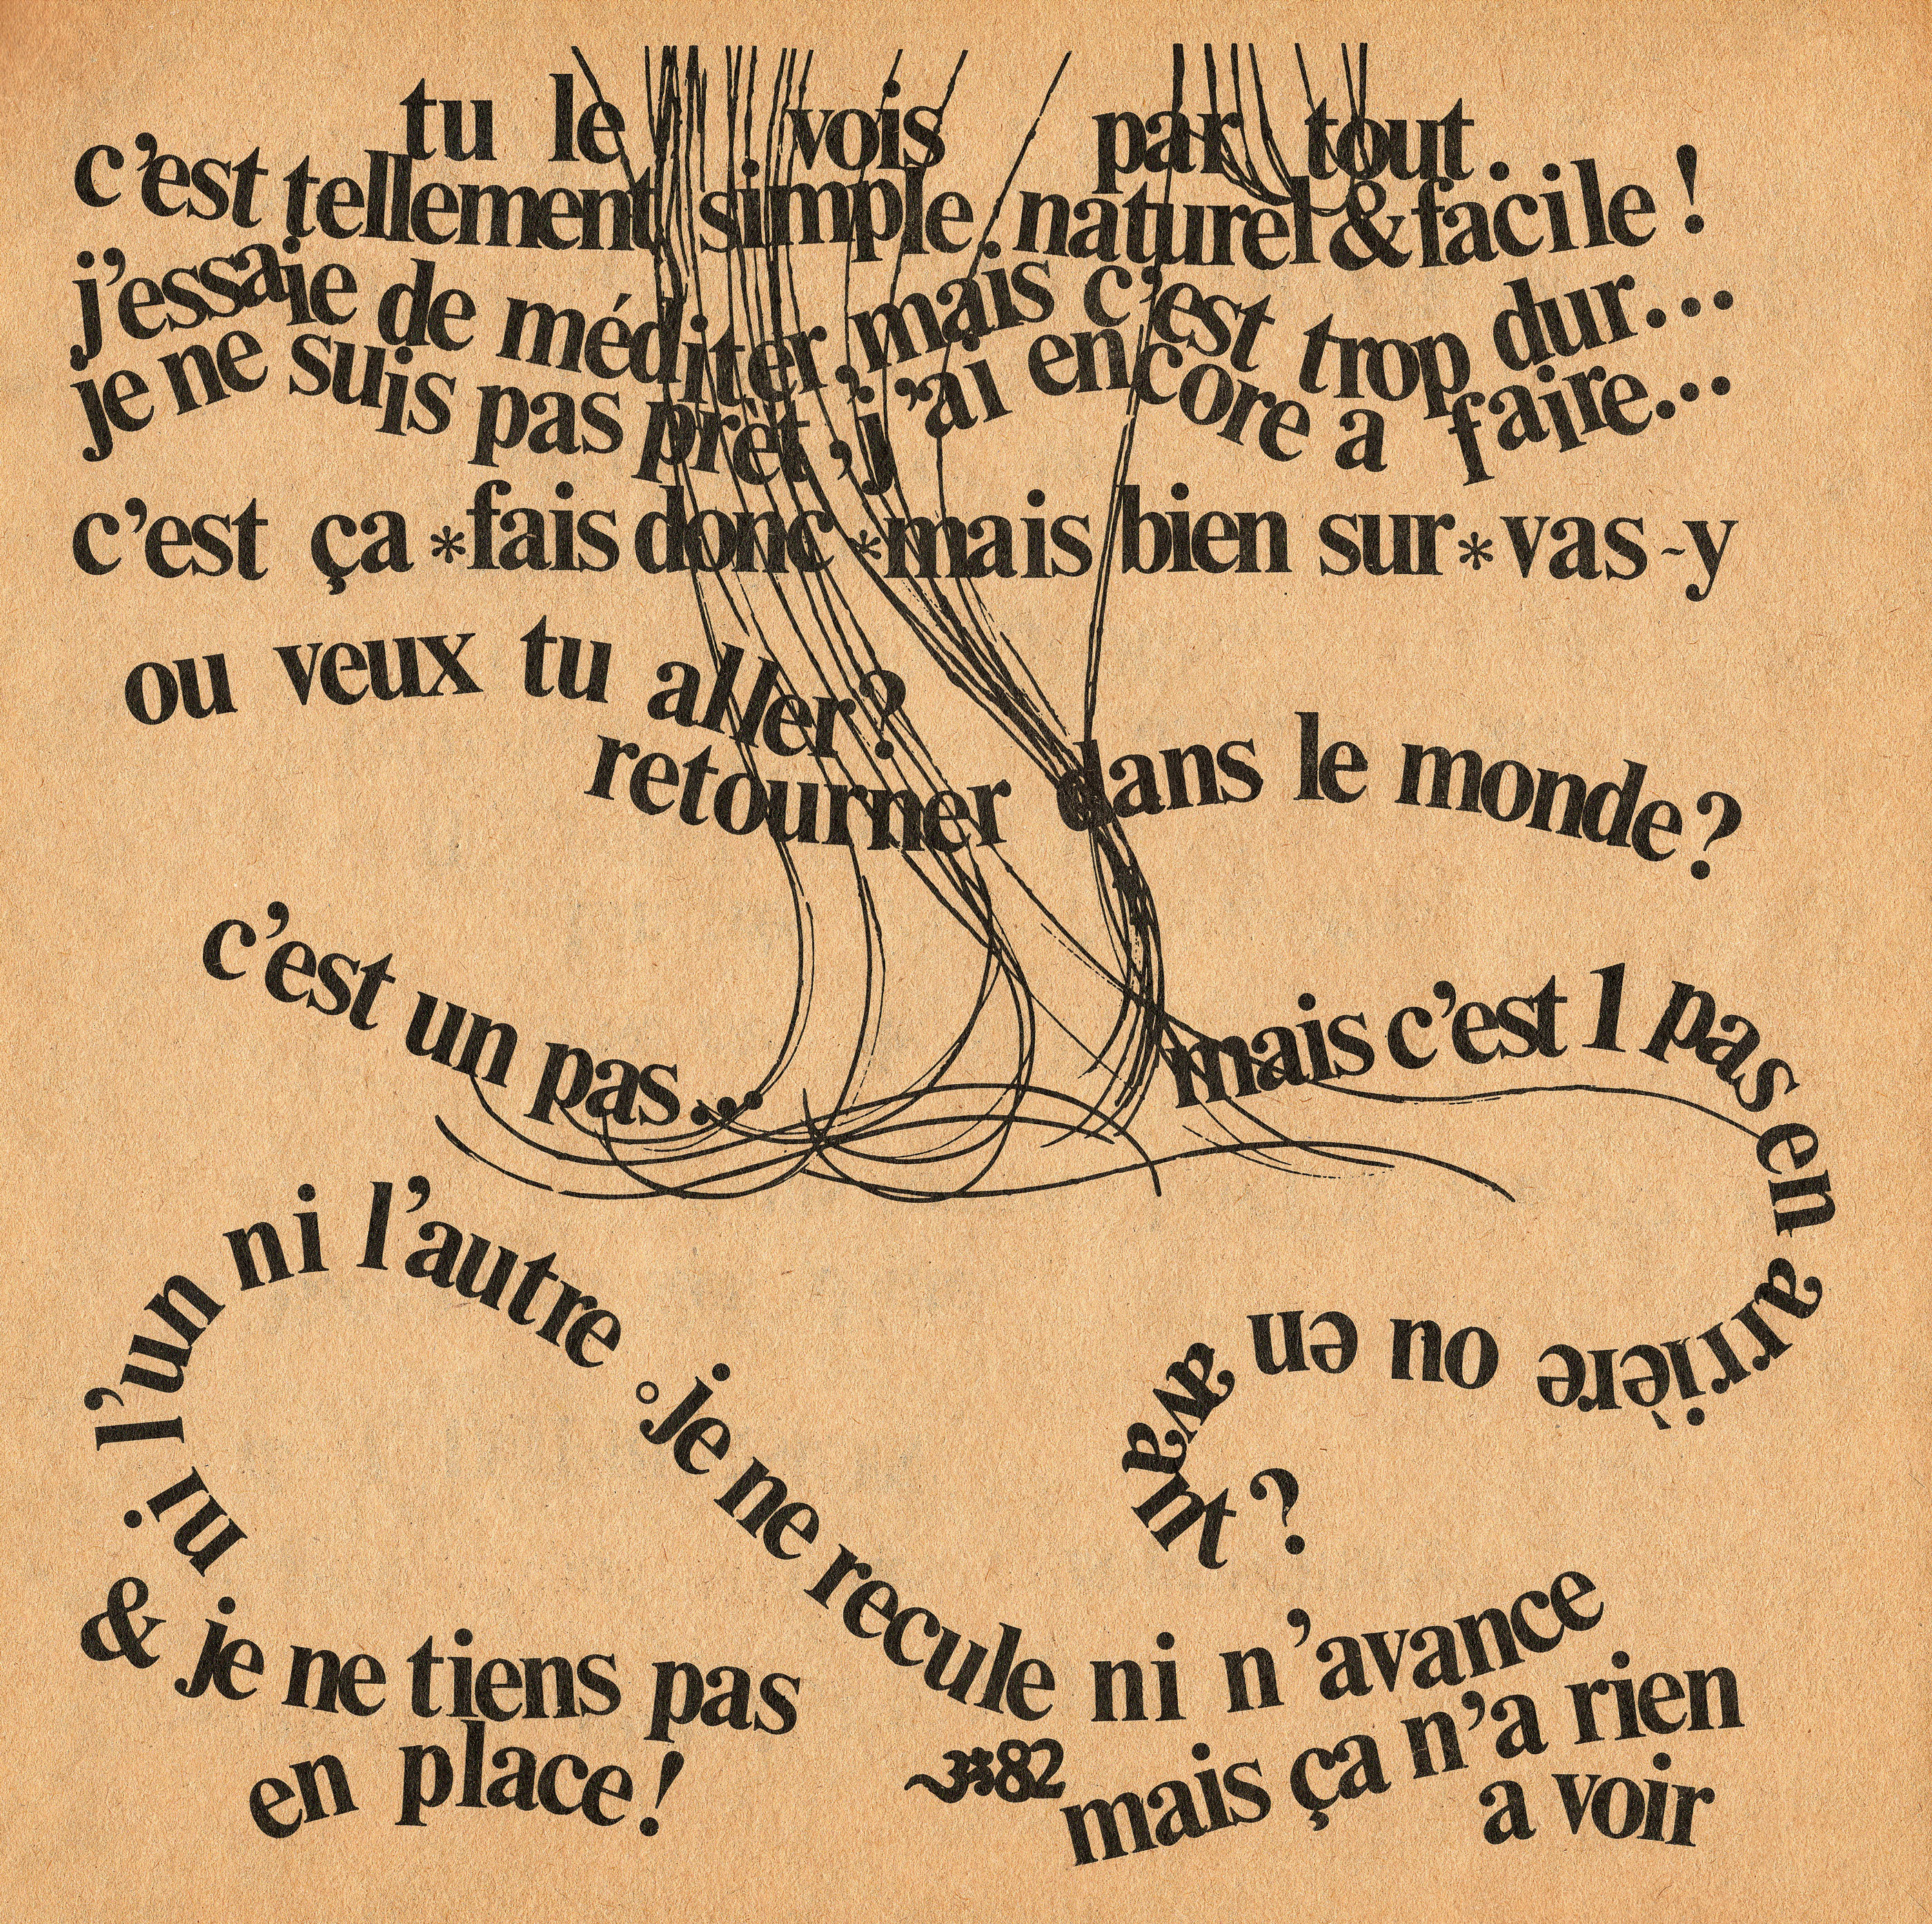 tu le vois par tout.
c'est tellement simple. naturel & facile !
j'essaie de méditer, mais c'est trop dur...
je ne suis pas prêt, j'ai encore a faire...
c'est ça * fais donc * mais bien sur * vas-y
ou veux tu aller ?
retourner dans le monde ?
c'est un pas...
mais c'est 1 pas en arrière ou en avant ?
ni l'un ni l'autre ° je ne recule ni n'avance
& je ne tiens pas
en place !
82
mais ça n'a rien
a voir